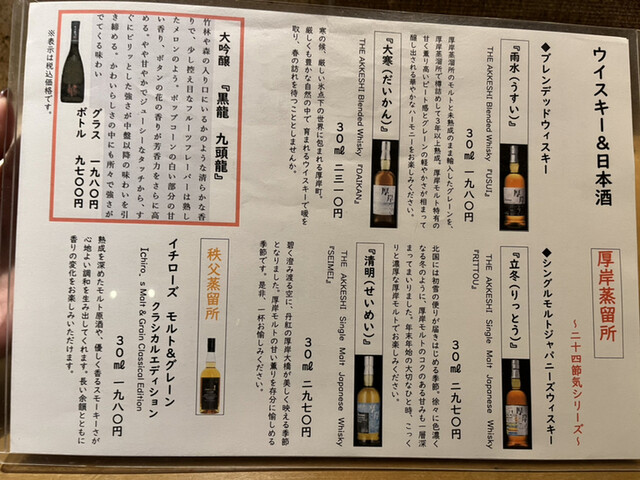 ウイスキー＆日本酒
厚岸蒸留所
～二十四節気シリーズ～
◆ブレンデッドウィスキー
『雨水（うすい）』
THE AKKESHI Blended Whisky 『USUI』
３０㎖ 一九八〇円
厚岸蒸溜所のモルトと未熟成のまま輸入したグレーンを、
厚岸蒸溜所で樽詰めして３年以上熟成。厚岸モルト特有の
甘く薫り高いピート感とグレーンの軽やかさが相まって
醸し出される華やかなハーモニーをお楽しみください。
『大寒（だいかん）』
THE AKKESHI Blended Whisky 『DAIKAN』
３０㎖ 二三一〇円
寒の候、厳しい氷点下の世界に包まれる厚岸町。
厳しくも豊かな自然の中で 育まれるウイスキーで暖を
取り、春の訪れを待つこととしませんか。
◆シングルモルトジャパニーズウィスキー
『立冬（りっとう）』
THE AKKESHI Single Malt Japanese Whisky
『RITTOU』
３０㎖ 二九七〇円
北国には初雪の便りが届きはじめる季節。徐々に色濃く
なる冬のように、厚岸モルトのコクのある甘みも一層深
まってまいりました。年末年始の大切なひと時、こっく
りと濃厚な厚岸モルトでお楽しみください。
『清明（せいめい）』
THE AKKESHI Single Malt Japanese Whisky
『SEIMEI』
３０㎖ 二九七〇円
碧く澄み渡る空に、丹紅の厚岸大橋が美しく映える季節
となりました。厚岸モルトの甘い薫りを存分に愉しめる
季節です。是非、一杯お愉しみください。
大吟醸 『黒龍 九頭龍』
竹林や森の入り口にいるかのような清らかな香
りで、少し控え目なフルーツフレーバーは熟し
たメロンのよう。ポップコーンの白い部分の甘
い香り、ボタンの花の香りが芳香力をさらに高
める。やや甘やかでジューシーなタッチから、す
ぐにピリッとした強さが中盤以降の味わいを引
き締める。かわいらしさの中にも所々で強さが
でてくる味わい
グラス 一九八〇円
ボトル 九七〇〇円
※表示は税込価格です。
秩父蒸留所
イチローズ モルト＆グレーン
クラシカルエディション
Ichiro、s Malt & Grain Classical Edition
３０㎖ 一九八〇円
熟成を深めたモルト原酒や、優しく香るスモーキーさが
心地よい調和を生み出してくれます。長い余韻とともに
香りの変化をお楽しみいただけます。